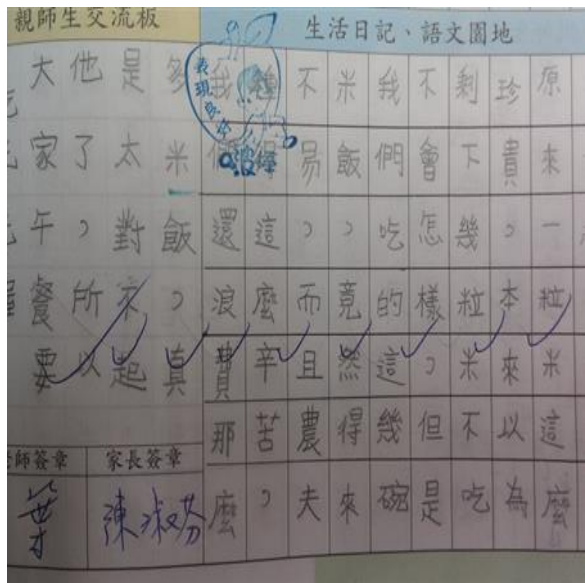 親師生交流板
生活日記、語文園地
原來一粒米這麼
珍貴，本來以為
剩下幾粒米不吃
不會怎樣，但是
我們吃的這幾碗
米飯，竟然得來
不易，而且農夫
種得這麼辛苦，
我們還浪費那麼
多米飯，真
是太對不起
他了，所以
大家午餐要
表現良好
師簽章
家長簽章
葉
陳淑芬